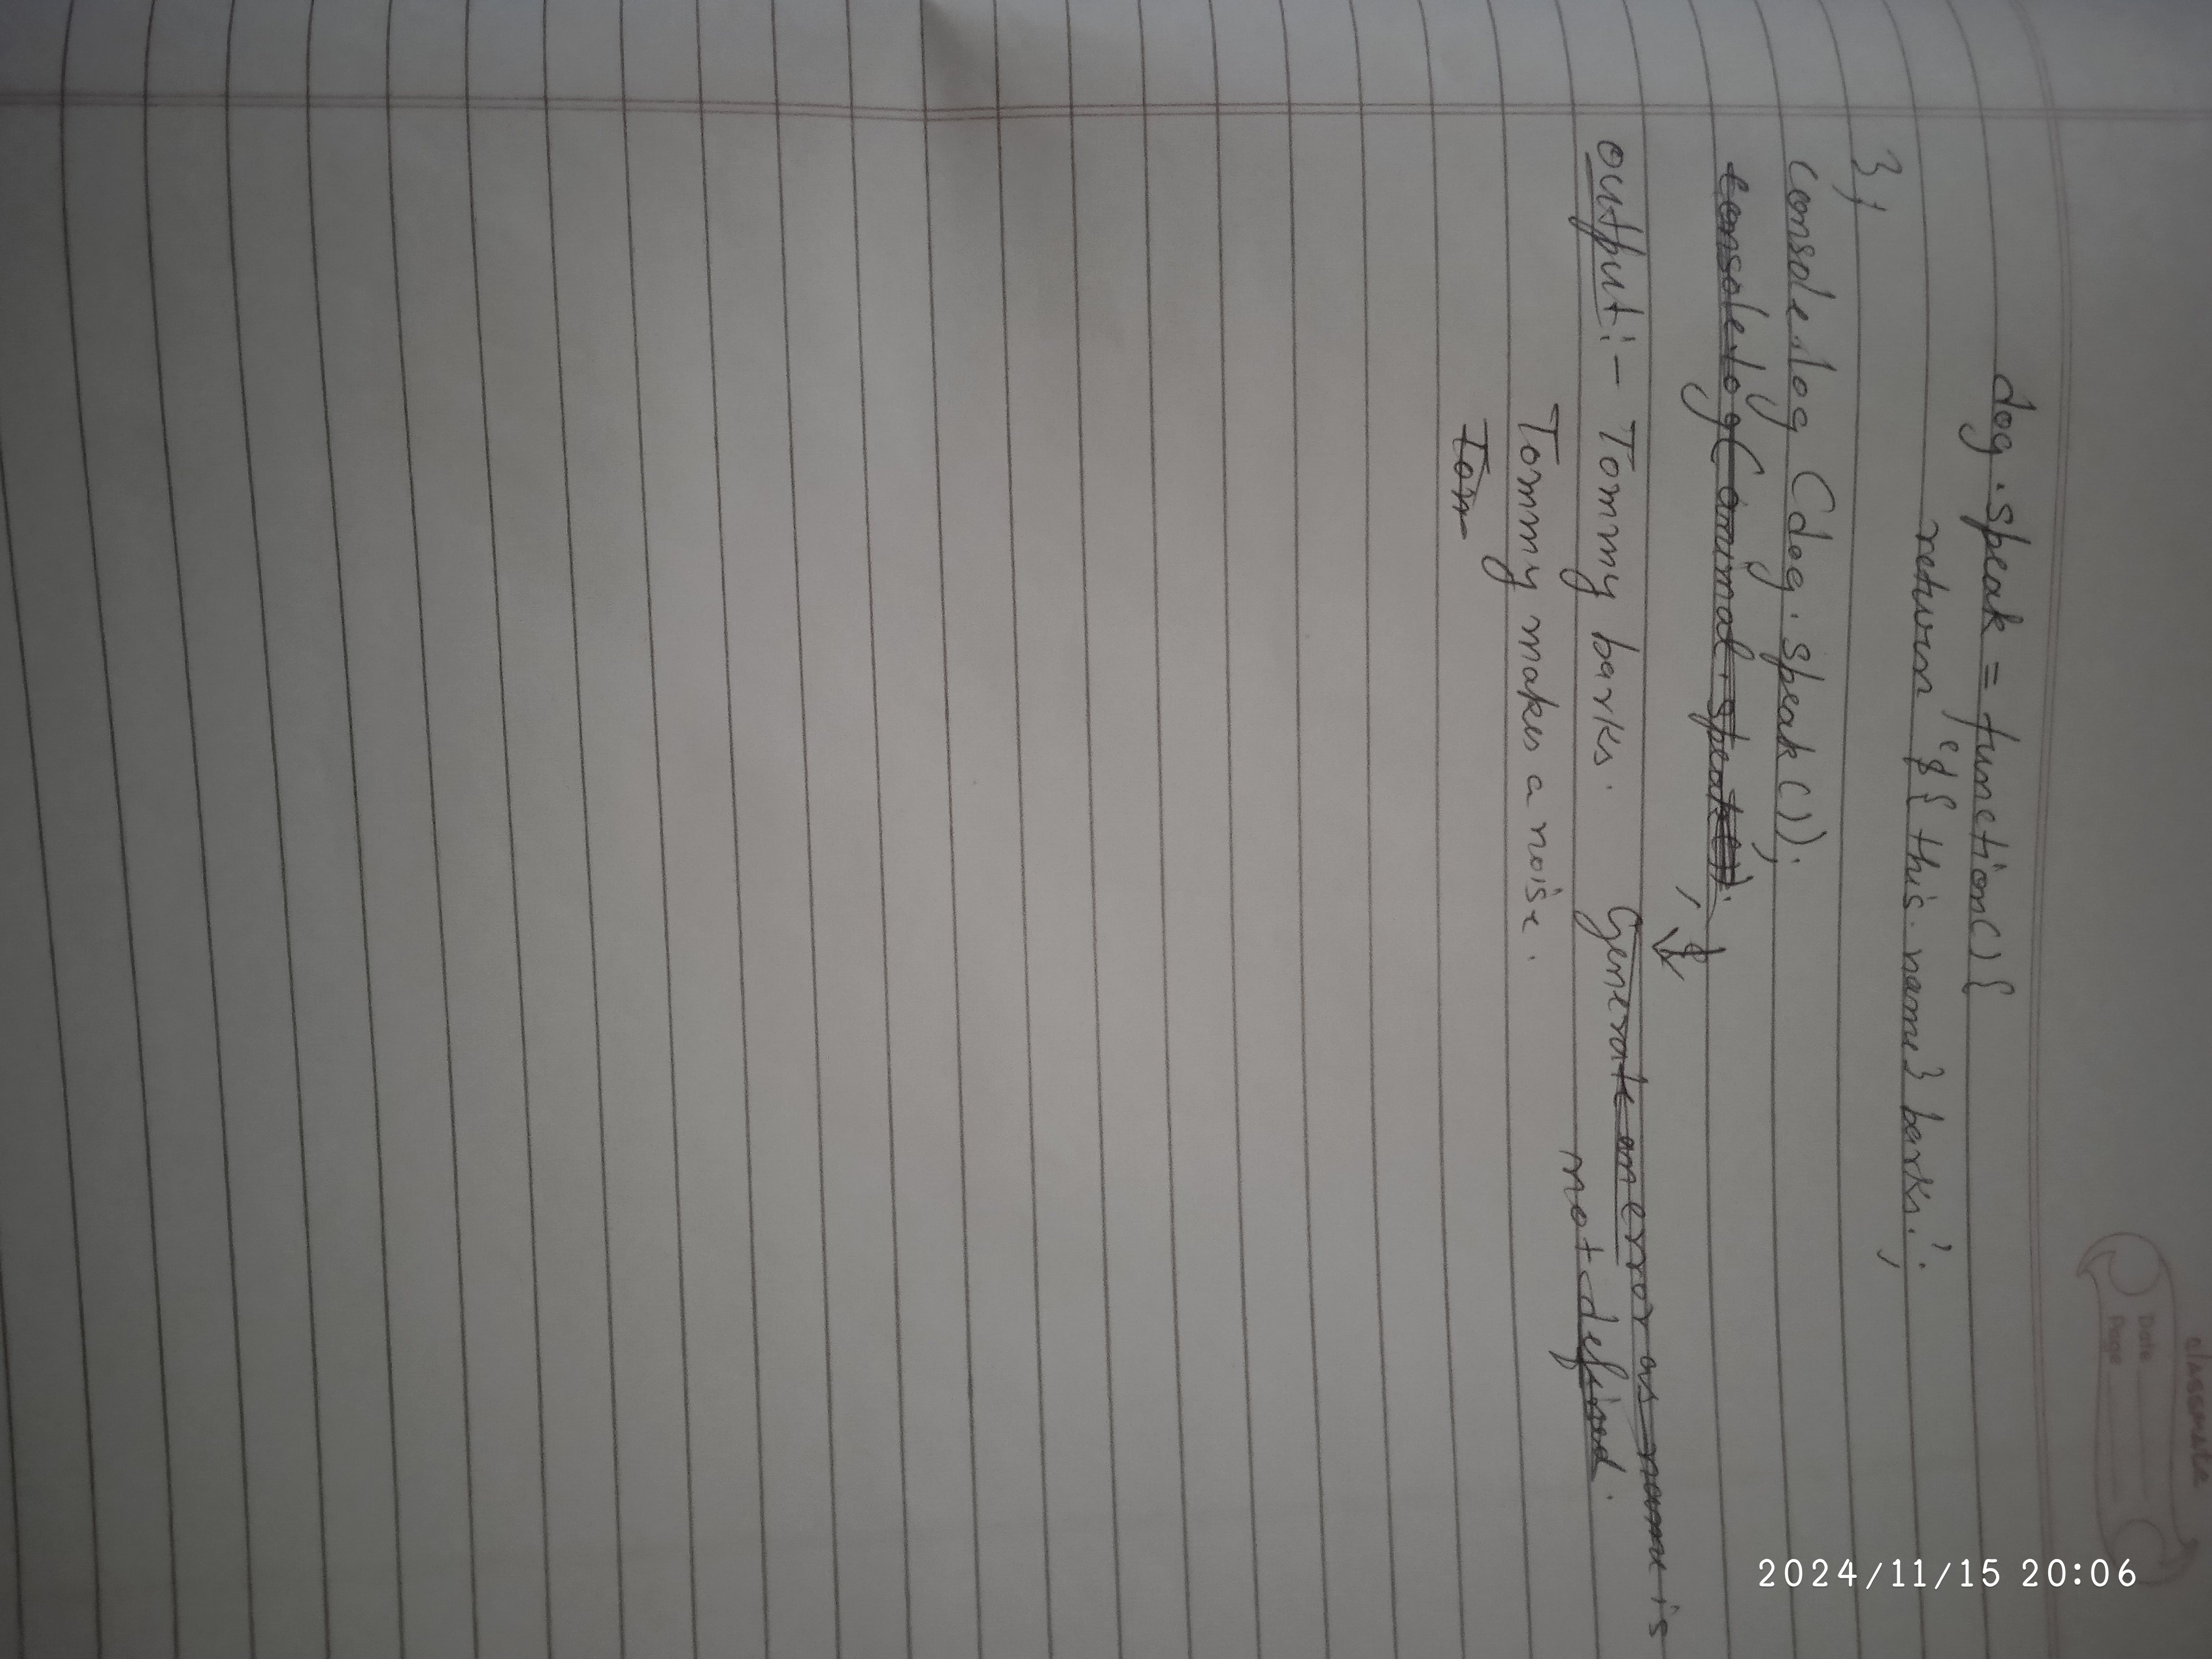 classmate
Date
Page
dog.speak = function(){
return '${this.name} barks.';
};
console.log(dog.speak());
console.log(animal.speak());
output:- Tommy barks. Generate an error as name is
not defined.
Tommy makes a noise.
Tom
2024/11/15 20:06